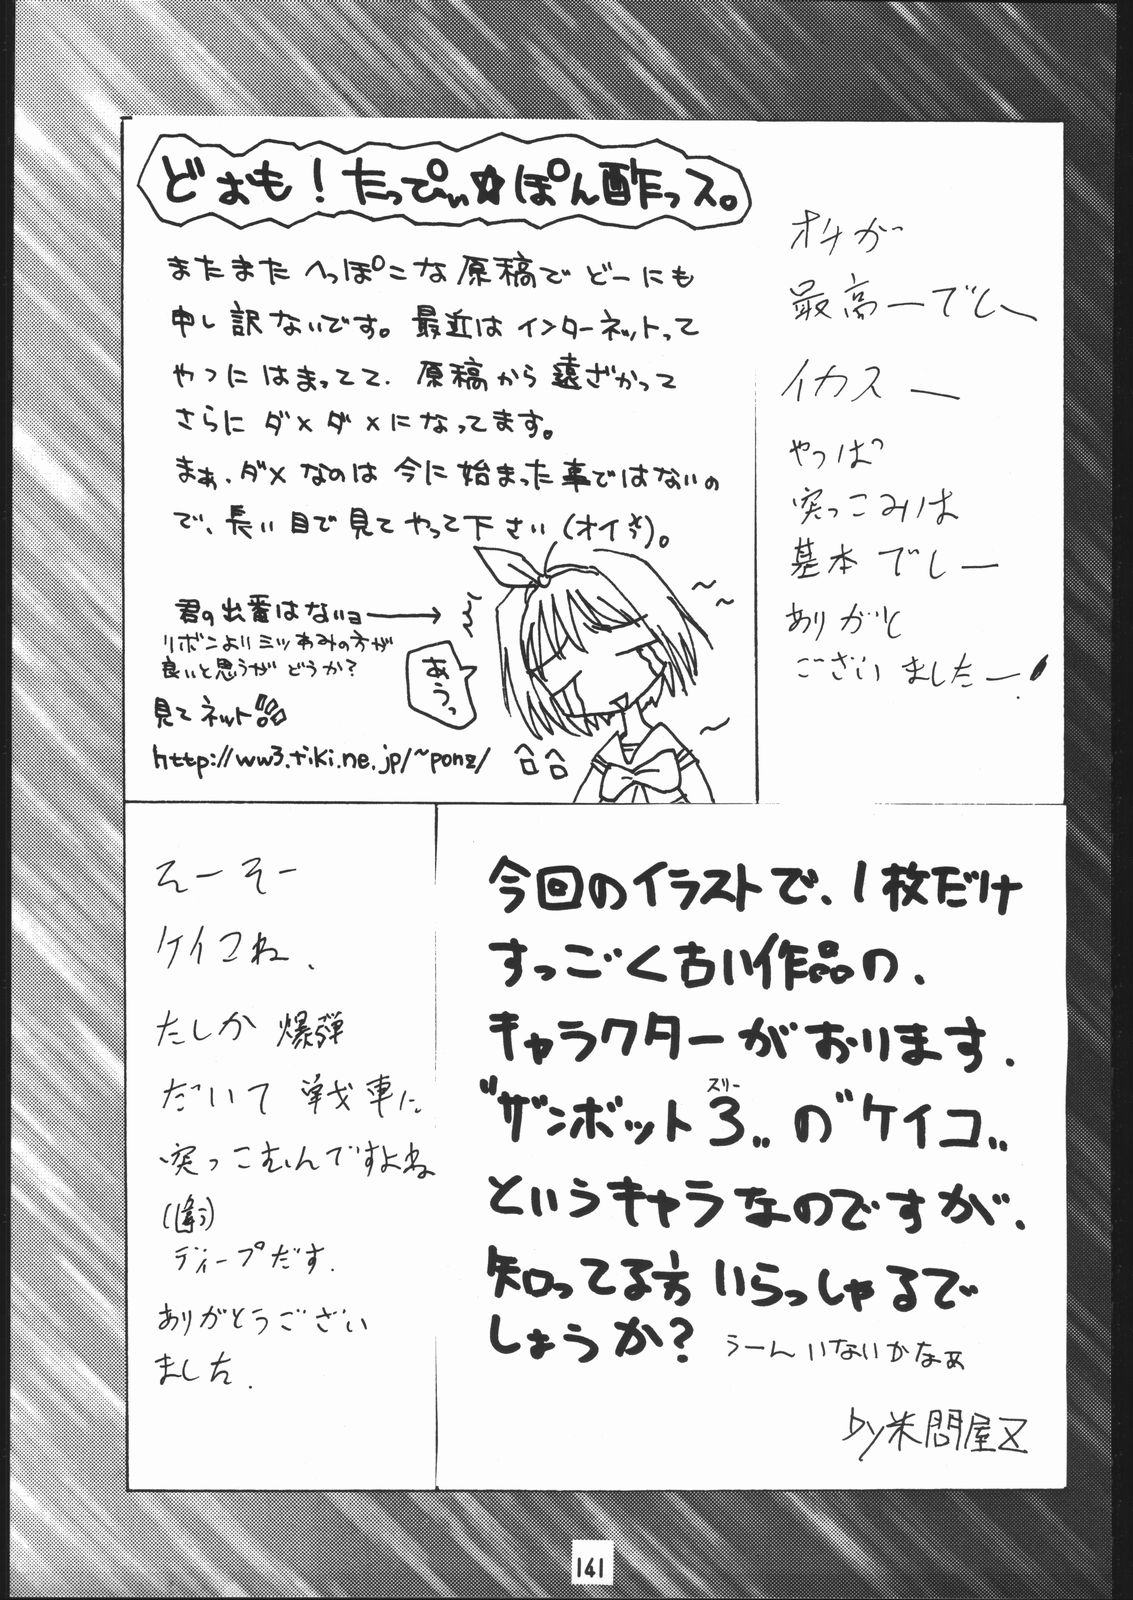 どぉも!たっぴぃ☆ぽん酢っス。
またまた へっぽこな原稿で どーにも
申し訳ないです。最近は インターネットって
やつに はまってて、原稿から 遠ざかって
さらに ダメダメになってます。
まぁ、ダメなのは 今に始まった事ではないの
で、長い目で見てやって下さい(オイ
君の出番はないョ→
リボンよりミツあみの方が
良いと思うが どうか?
あうっ
見てネット
http://ww3.tiki.ne.jp/~ponz/
オチが
最高ーでしー
イカスー
やっぱっ
突っこみは
基本でしー
ありがと
ございましたー!
そーそー
ケイコね、
たしか 爆弾
だいて 戦車に
突っこむんですよね
(違う)
ディープだす.
ありがとうござい
ました.
今回のイラストで、1枚だけ
すっごく古い作品の、
キャラクターがおります.
"ザンボット3"の"ケイコ"
スリー
というキャラなのですが、
知ってる方 いらっしゃるで
しょうか?
うーん いないかなぁ
by米問屋Z
141